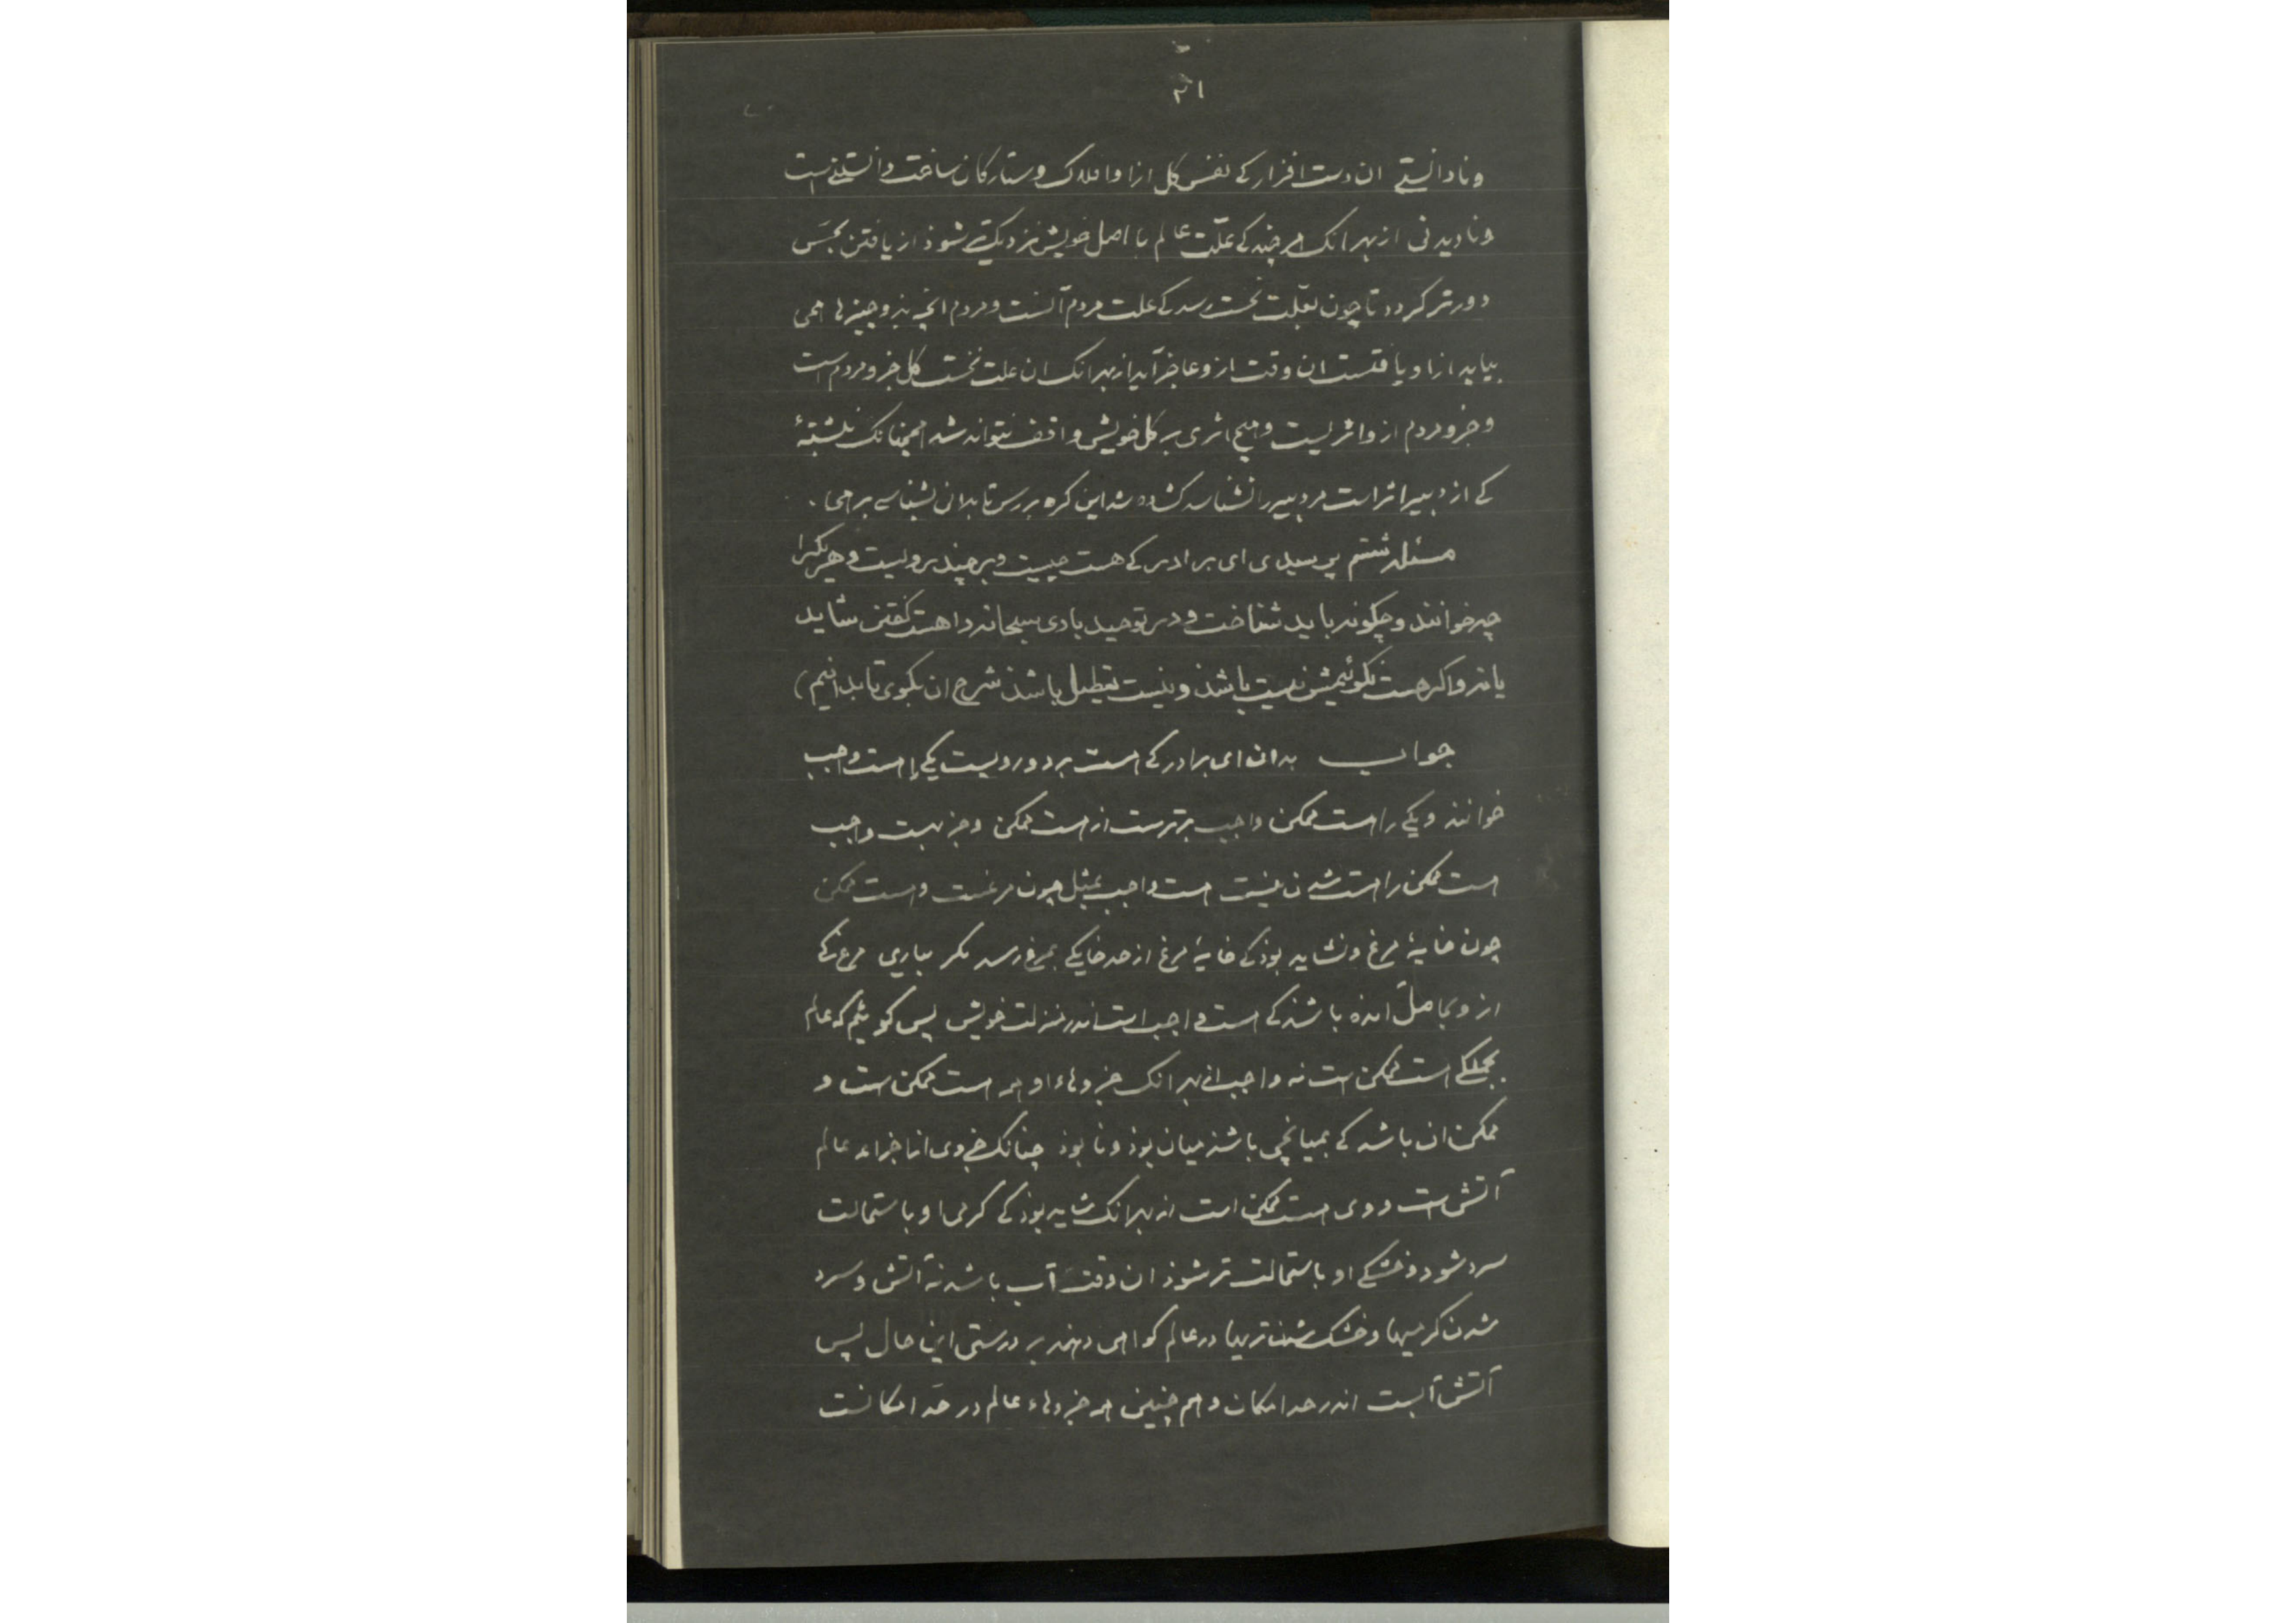 ۲۱
ونادانستی ان دست افزار کے نفس کل ازا وافلاک وستارکان ساخت دانستنیست
ونادیدنی از بهر انک هر چند کے علّت عالم با اصل خویش نزدیکتر شوذ از یافتن بحسّ
دورتر کردد تا چون بعلّت نخست رسد کے علت مردم آنست ومردم انچه بذو چیزها همی
بیابد ازا ویافتست ان وقت ازو عاجز آید از بهر انک ان علت نخست کل جزو مردم است
وجزو مردم ازو اثریست وهیچ اثری بر کل خویش واقف نتواند شد همچنانک نبشتهٔ
کے از دبیر اثر است مر دبیر را نشناسد کشوده شد این کره بررس تا بدانی بشناسے برهی .
مسئله ششم پرسیدی ای برادر کے هست چیست وبر چند رویست وهر یکیرا
چه خوانند وچکونه باید شناخت ودر توحید باری سبحانه را هست کفتن شاید
یا نه واکر هست نکوئیمش نیست باشذ ونیست تعطیل باشذ شرح ان بکوی تا بدانیم)
جواب بدان ای برادر کے هست بر دو رویست یکی را هست واجب
خوانند ویکے را هست ممکن واجب برترست از هست ممکن وجز بهست واجب
هست ممکن را هست شدن نیست هست واجب بمثل چون مرغست وهست ممکن
چون خایهٔ مرغ ونشاید بوذ کے خایهٔ مرغ از حد خایکے بمرغ رسد مکر بیاری مرغ کے
ازو بحاصل امذه باشذ کے هست واجب است اندر منزلت خویش پس کوئیم که عالم
بجملکے هست ممکن ست نه واجب از بهر انک جزوهاء او همه هست ممکن ست و
ممکن ان باشد کے بمیانجی باشذ میان بوذ ونابوذ چنانک جزوی از اجزاء عالم
آتش است ووی هست ممکن است از بهر انک شاید بوذ کے کرمی او باستحالت
سرد شود وخشکے او باستحالت تر شوذ ان وقت آب باشد نه آتش وسرد
شدن کرمیها وخشک شدن تریها در عالم کواهی دهند بر درستی این حال پس
آتش آبست اندر حد امکان وهم چنین همه جزوهاء عالم در حدّ امکانست